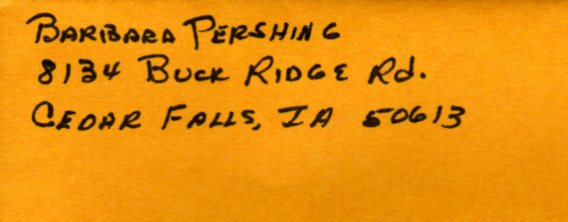 BARBARA PERSHING
8134 BUCK RIDGE Rd.
CEDAR FALLS, IA 50613